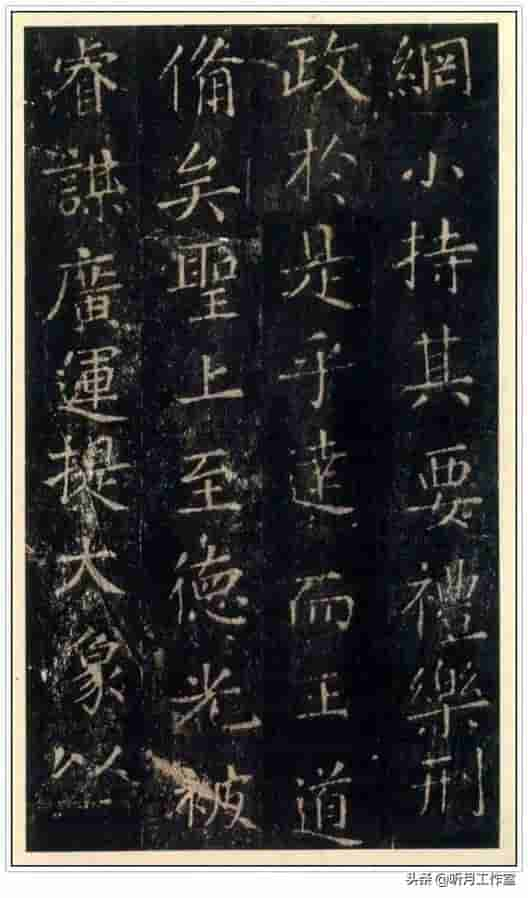 網小持其要禮樂刑
政於是乎達而王道
備矣聖上至德光被
睿謀廣運提大象以
头条 @听月工作室